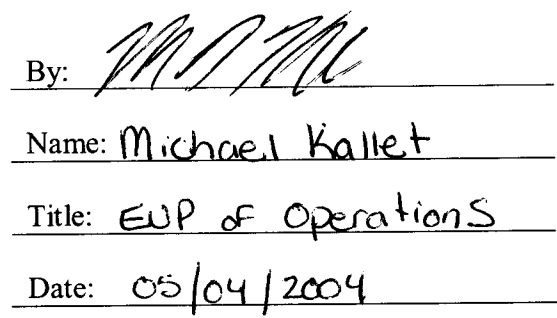 By:
Name: Michael Kallet
Title: EVP of Operations
Date: 05/04/2004